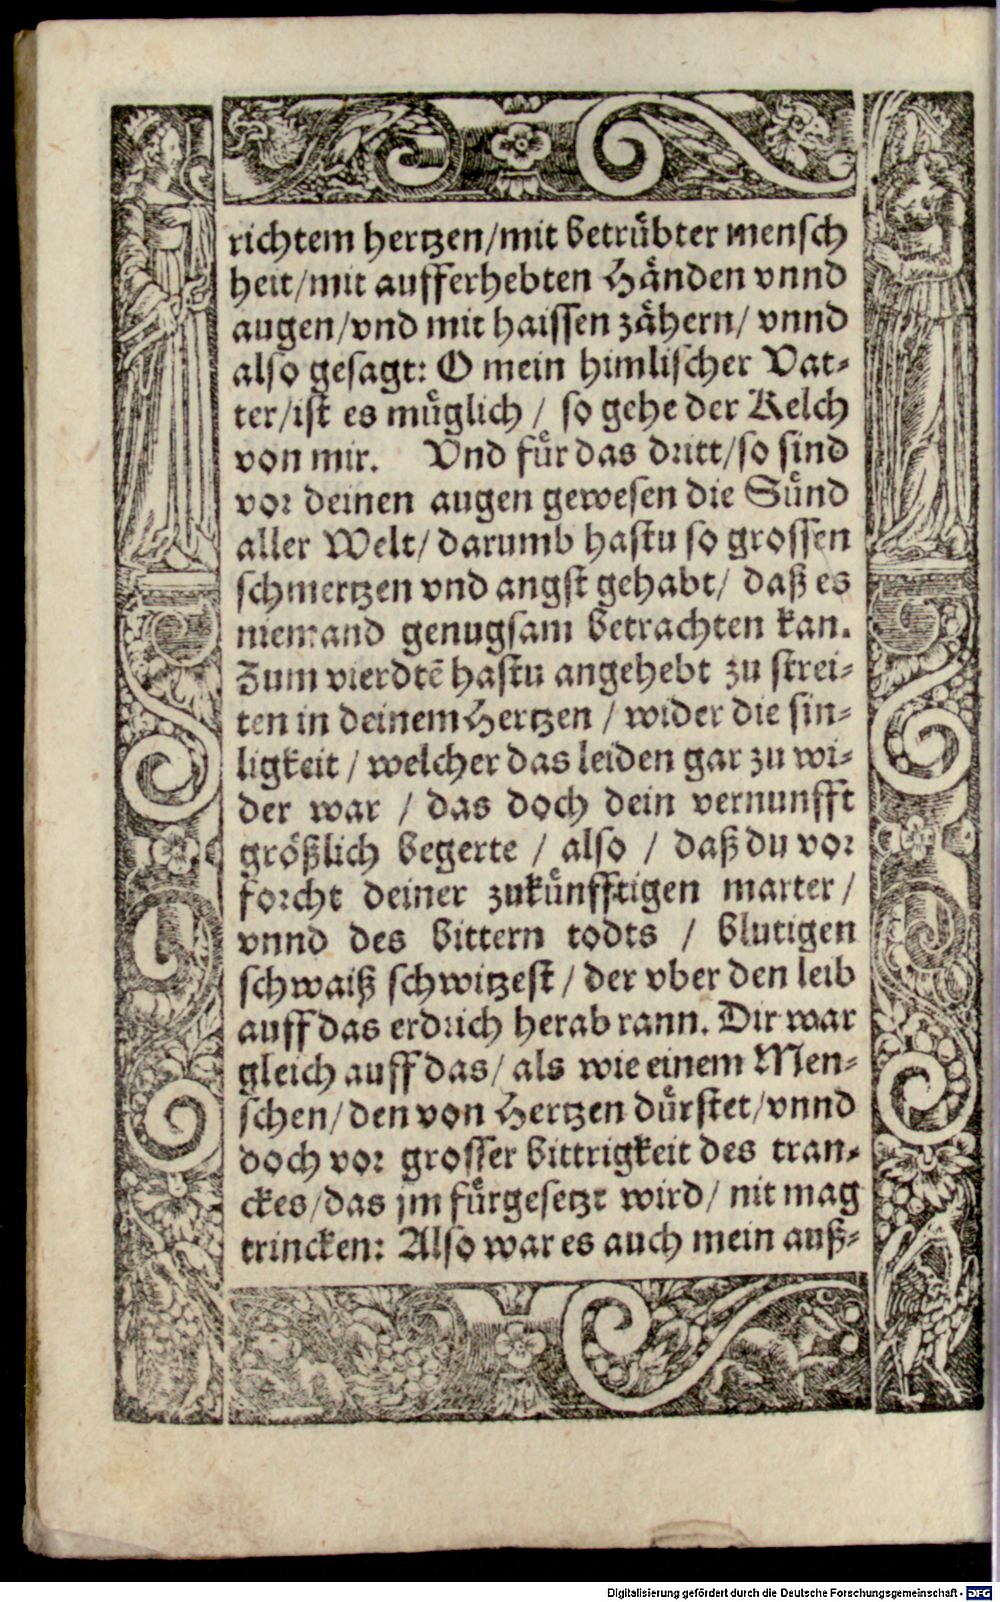 richtem hertzen/mit betrübter mensch
heit/mit aufferhebten Händen vnnd
augen/vnd mit haissen zähern/ vnnd
also gesagt: O mein himlischer Vat-
ter/ist es müglich / so gehe der Kelch
von mir. Vnd für das dritt/so sind
vor deinen augen gewesen die Sünd
aller Welt/ darumb hastu so grossen
schmertzen vnd angst gehabt/ daß es
niemand genugsam betrachten kan.
Zum vierdtē hastu angehebt zu strei-
ten in deinem Hertzen / wider die sin-
ligkeit / welcher das leiden gar zu wi-
der war / das doch dein vernunfft
größlich begerte / also / daß du vor
forcht deiner zukünfftigen marter /
vnnd des bittern todts / blutigen
schwaiß schwitzest / der vber den leib
auff das erdrich herab rann. Dir war
gleich auff das/ als wie einem Men-
schen/ den von Hertzen dürstet/vnnd
doch vor grosser bittrigkeit des tran-
ckes/das jm fürgesetzt wird/ nit mag
trincken: Also war es auch mein auß-
Digitalisierung gefördert durch die Deutsche Forschungsgemeinschaft - DFG